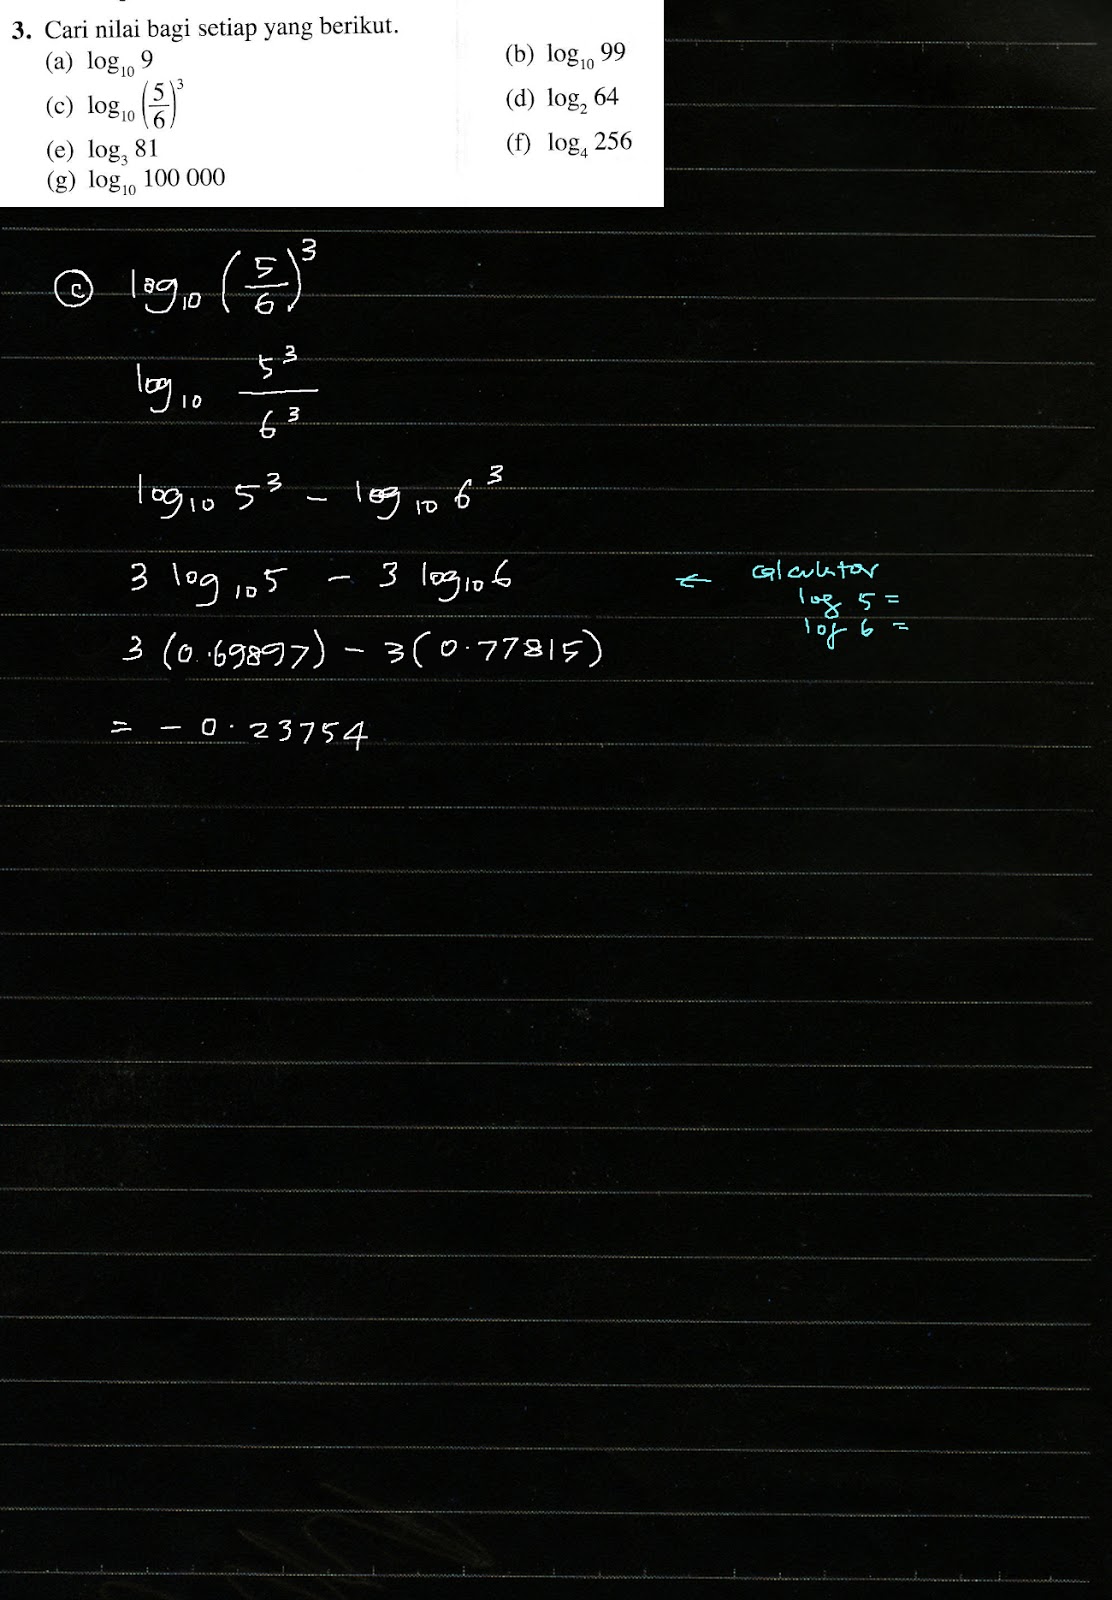 3. Cari nilai bagi setiap yang berikut.
(a) log₁₀ 9
(b) log₁₀ 99
(c) log₁₀ (5/6)³
(d) log₂ 64
(e) log₃ 81
(f) log₄ 256
(g) log₁₀ 100 000
(c) log₁₀ (5/6)³
log₁₀ 5³/6³
log₁₀ 5³ - log₁₀ 6³
3 log₁₀ 5 - 3 log₁₀ 6 ← calculator
log 5 =
log 6 =
3 (0.69897) - 3 (0.77815)
= - 0.23754